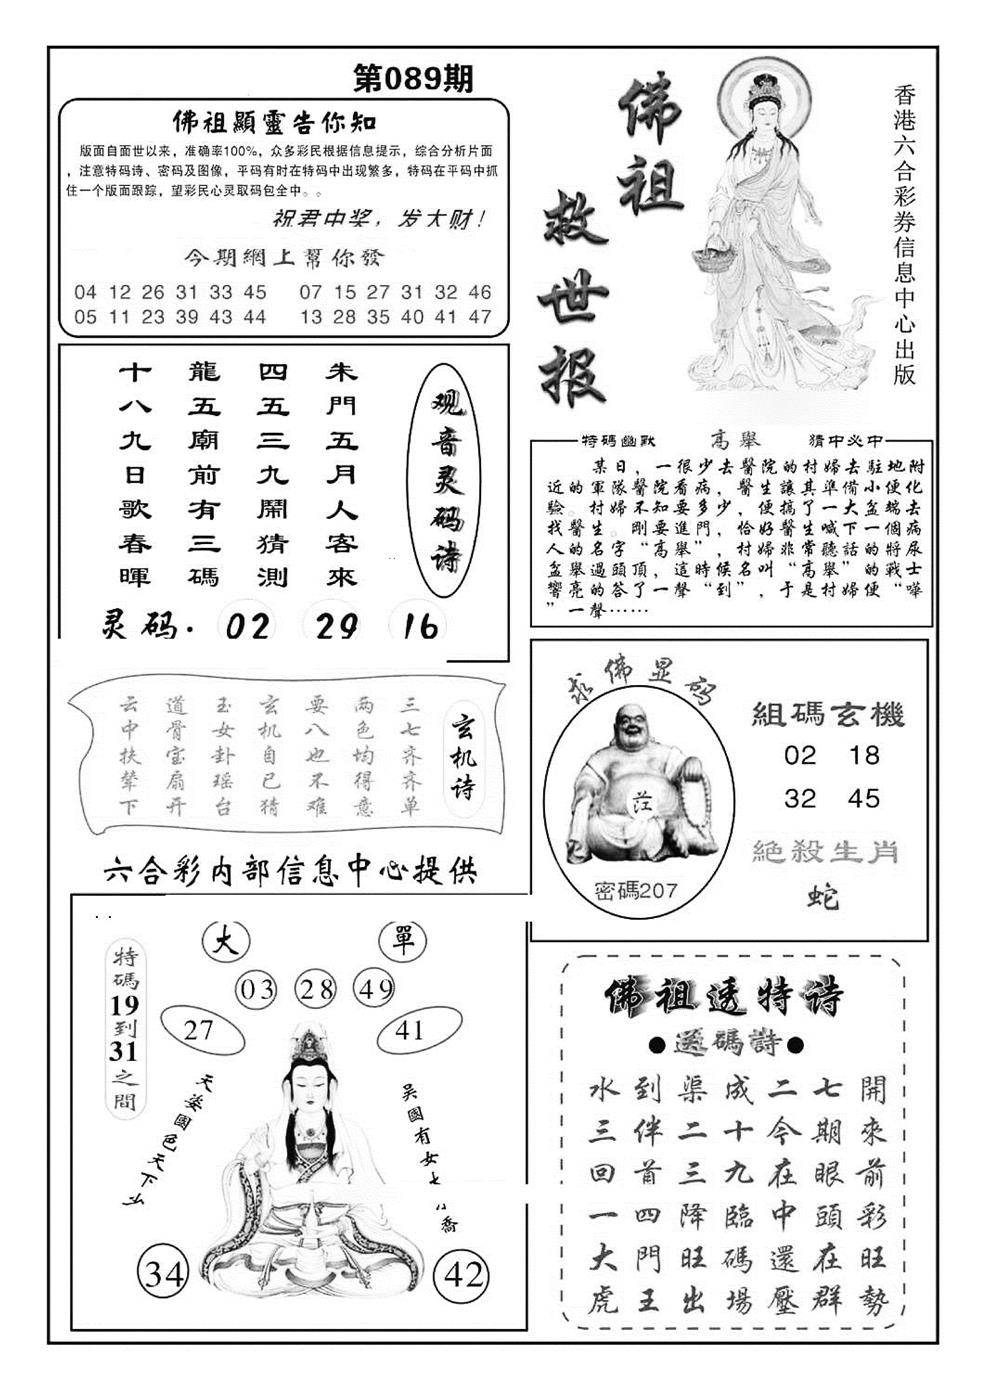 第089期
佛祖顯靈告你知
版面自面世以来，准确率100%，众多彩民根据信息提示，综合分析片面
，注意特码诗、密码及图像，平码有时在特码中出现繁多，特码在平码中抓
住一个版面跟踪，望彩民心灵取码包全中。。
祝君中奖，发大财！
今期網上幫你發
04 12 26 31 33 45 07 15 27 31 32 46
05 11 23 39 43 44 13 28 35 40 41 47
佛祖
救世报
香港六合彩券信息中心出版
观音灵码诗
朱門五月人客來
四五三九鬧猜測
龍五廟前有三碼
十八九日歌春暉
灵码. 02 29 16
特碼幽默 高舉 猜中必中
某日，一很少去醫院的村婦去駐地附
近的軍隊醫院看病，醫生讓其準備小便化
驗。村婦不知要多少，便搞了一大盆端去
找醫生。剛要進門，恰好醫生喊下一個病
人的名字“高舉”，村婦非常聽話的將尿
盆舉過頭頂，這時候名叫“高舉”的戰士
響亮的答了一聲“到”，于是村婦便“嘩
”一聲……
玄机诗
三七齐齐单
两色均得意
要八也不难
玄机自已猜
玉女卦瑶台
道骨宝扇开
云中扶辇下
六合彩内部信息中心提供
求佛显码
密碼207
組碼玄機
02 18
32 45
絕殺生肖
蛇
大 單
03 28 49
27 41
特碼19到31之間
天姿國色天下
吴國有女
喬
34 42
佛祖透特诗
●透碼詩●
開來前彩旺勢
七期眼頭在群
二今在中還壓
成十九臨碼場
渠二三降旺出
到伴首四門王
水三回一大虎